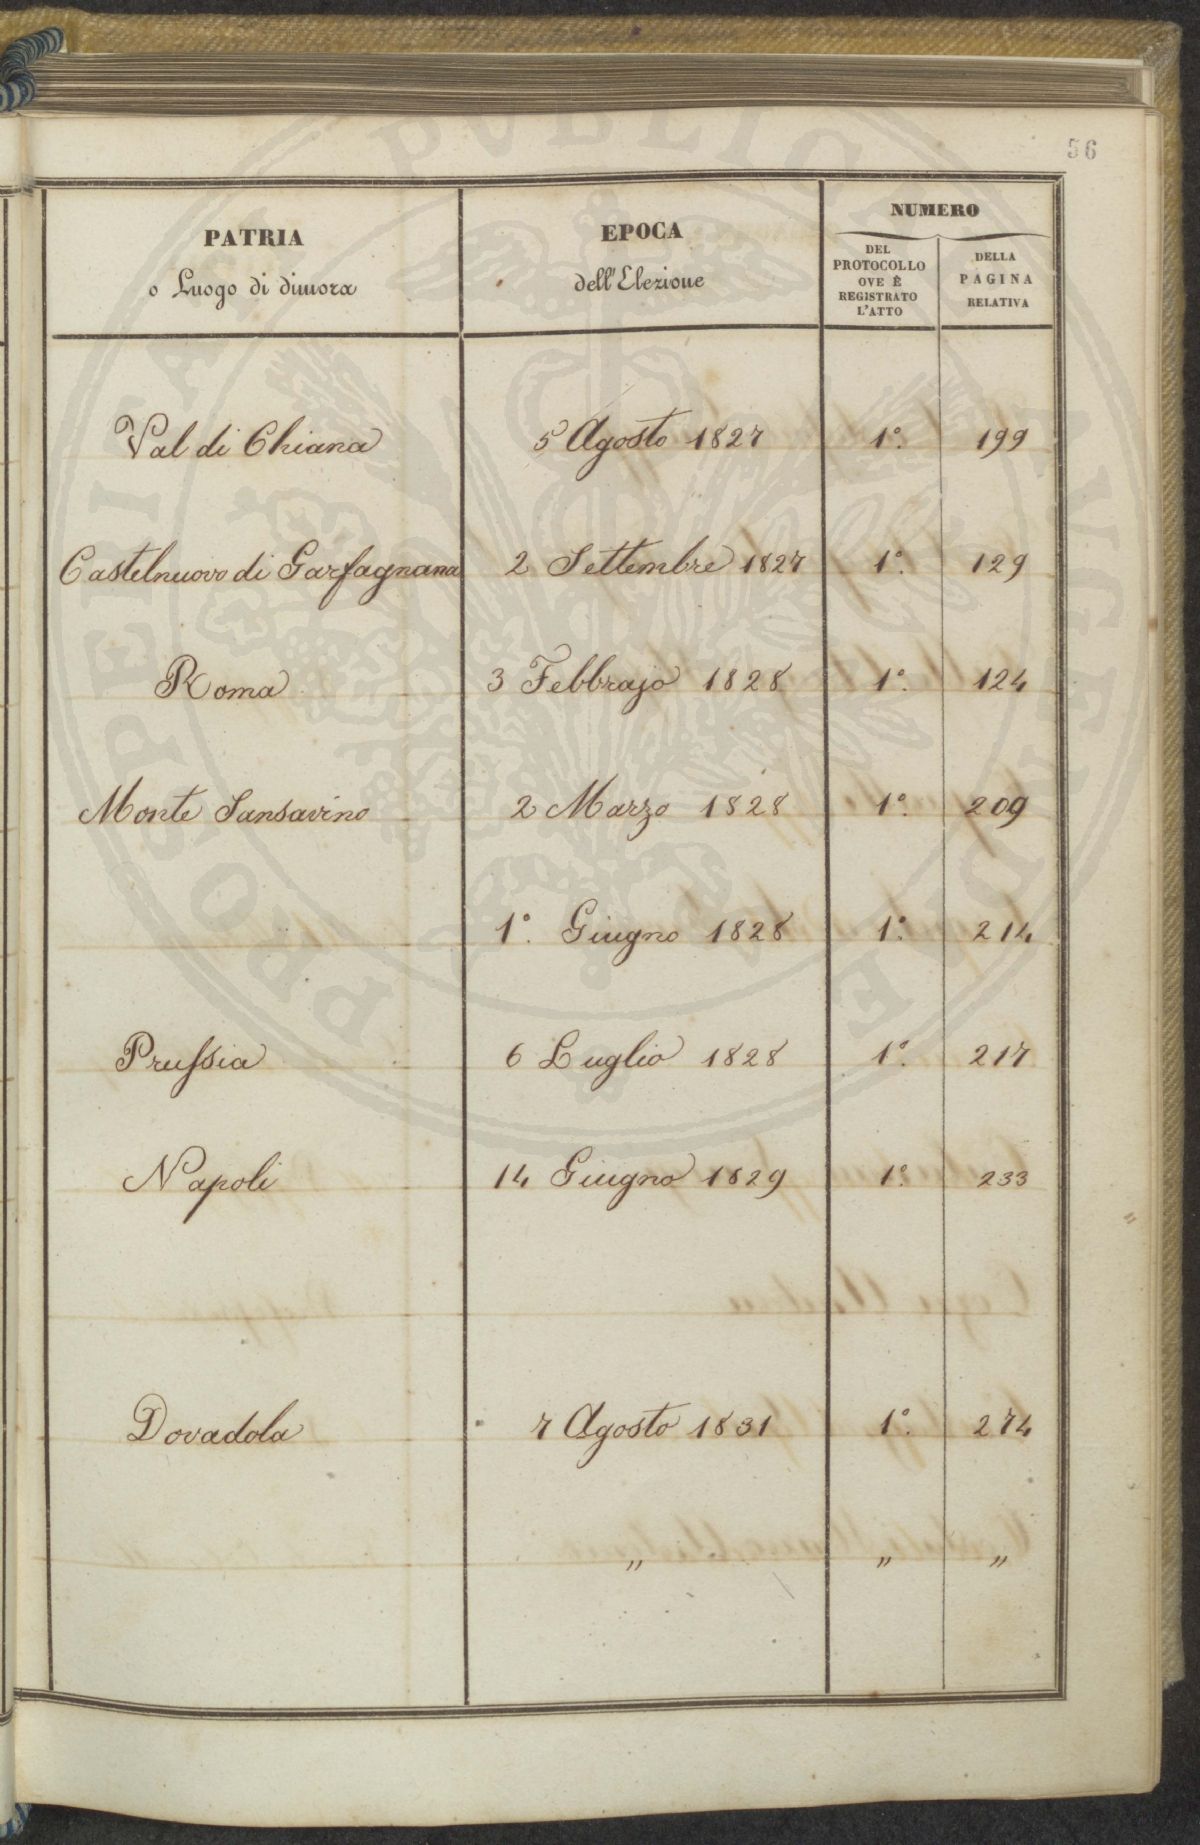 56
PATRIA
o Luogo di dimora
EPOCA
dell'Elezione
NUMERO
DEL
PROTOCOLLO
OVE È
REGISTRATO
L'ATTO
DELLA
PAGINA
RELATIVA
Val di Chiana 5 Agosto 1827 1º. 199
Castelnuovo di Garfagnana 2 Settembre 1827 1º. 129
Roma 3 Febbrajo 1828 1º. 124
Monte Sansavino 2 Marzo 1828 1º. 209
1º. Giugno 1828 1º. 214
Prussia 6 Luglio 1828 1º. 217
Napoli 14 Giugno 1829 1º. 233
Dovadola 7 Agosto 1831 1º. 274
" " "